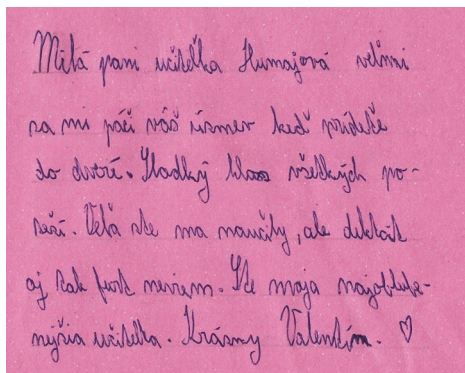 Milá pani učiteľka Humajová veľmi
sa mi páči váš úsmev keď prídeťe
do dvoré. Sladký hlas všetkých po-
teší. Veľa ste ma naučily, ale diktát
aj tak furt neviem. Ste moja najoblube-
nejšia učitelka. Krásny Valentím. ♡